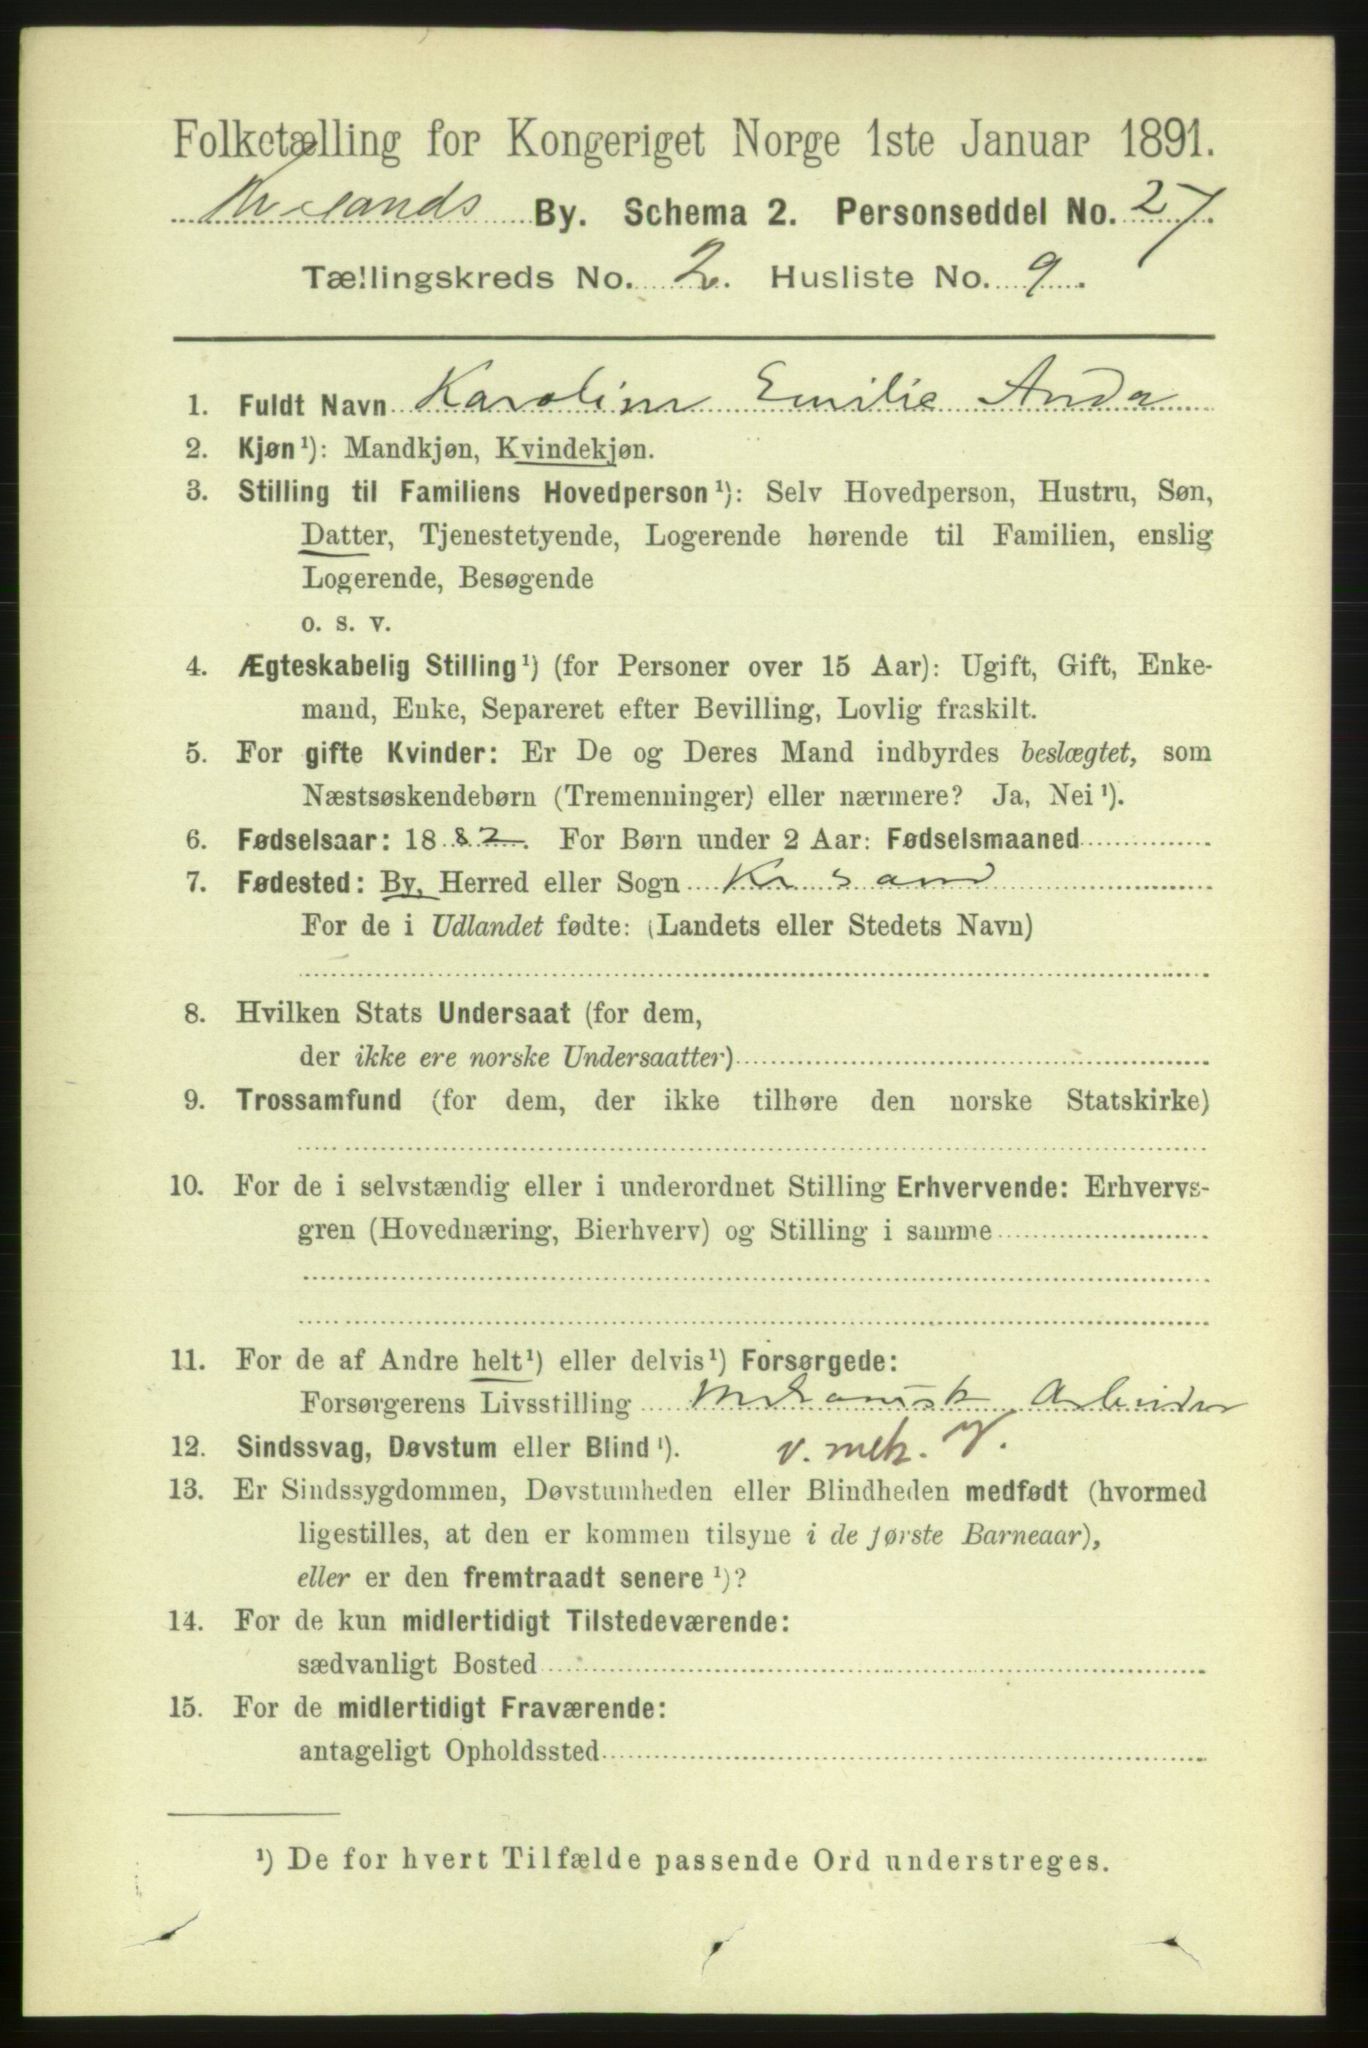 Folketælling for Kongeriget Norge 1ste Januar 1891.
Kr.sands By. Schema 2. Personseddel No. 27.
Tællingskreds No. 2. Husliste No. 9.
1. Fuldt Navn Karoline Emilie Anda
2. Kjøn¹): Mandkjøn, Kvindekjøn.
3. Stilling til Familiens Hovedperson¹): Selv Hovedperson, Hustru, Søn,
Datter, Tjenestetyende, Logerende hørende til Familien, enslig
Logerende, Besøgende
o. s. v.
4. Ægteskabelig Stilling¹) (for Personer over 15 Aar): Ugift, Gift, Enke-
mand, Enke, Separeret efter Bevilling, Lovlig fraskilt.
5. For gifte Kvinder: Er De og Deres Mand indbyrdes beslægtet, som
Næstsøskendebørn (Tremenninger) eller nærmere? Ja, Nei¹).
6. Fødselsaar: 1882. For Børn under 2 Aar: Fødselsmaaned
7. Fødested: By, Herred eller Sogn Kr sand
For de i Udlandet fødte: (Landets eller Stedets Navn)
8. Hvilken Stats Undersaat (for dem,
der ikke ere norske Undersaatter)
9. Trossamfund (for dem, der ikke tilhøre den norske Statskirke)
10. For de i selvstændig eller i underordnet Stilling Erhvervende: Erhvervs-
gren (Hovednæring, Bierhverv) og Stilling i samme
11. For de af Andre helt¹) eller delvis¹) Forsørgede:
Forsørgerens Livsstilling Mekanisk Arbeider
12. Sindssvag, Døvstum eller Blind¹). v. mek. V.
13. Er Sindssygdommen, Døvstumheden eller Blindheden medfødt (hvormed
ligestilles, at den er kommen tilsyne i de første Barneaar),
eller er den fremtraadt senere¹)?
14. For de kun midlertidigt Tilstedeværende:
sædvanligt Bosted
15. For de midlertidigt Fraværende:
antageligt Opholdssted
¹) De for hvert Tilfælde passende Ord understreges.